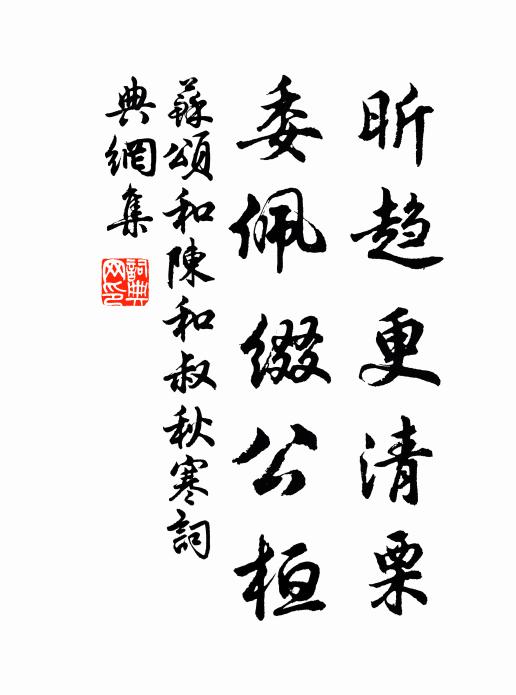 昕趋更清栗
委佩綴公桓
蘇頌和陳和叔秋寒詞
典網集
詞典
网印